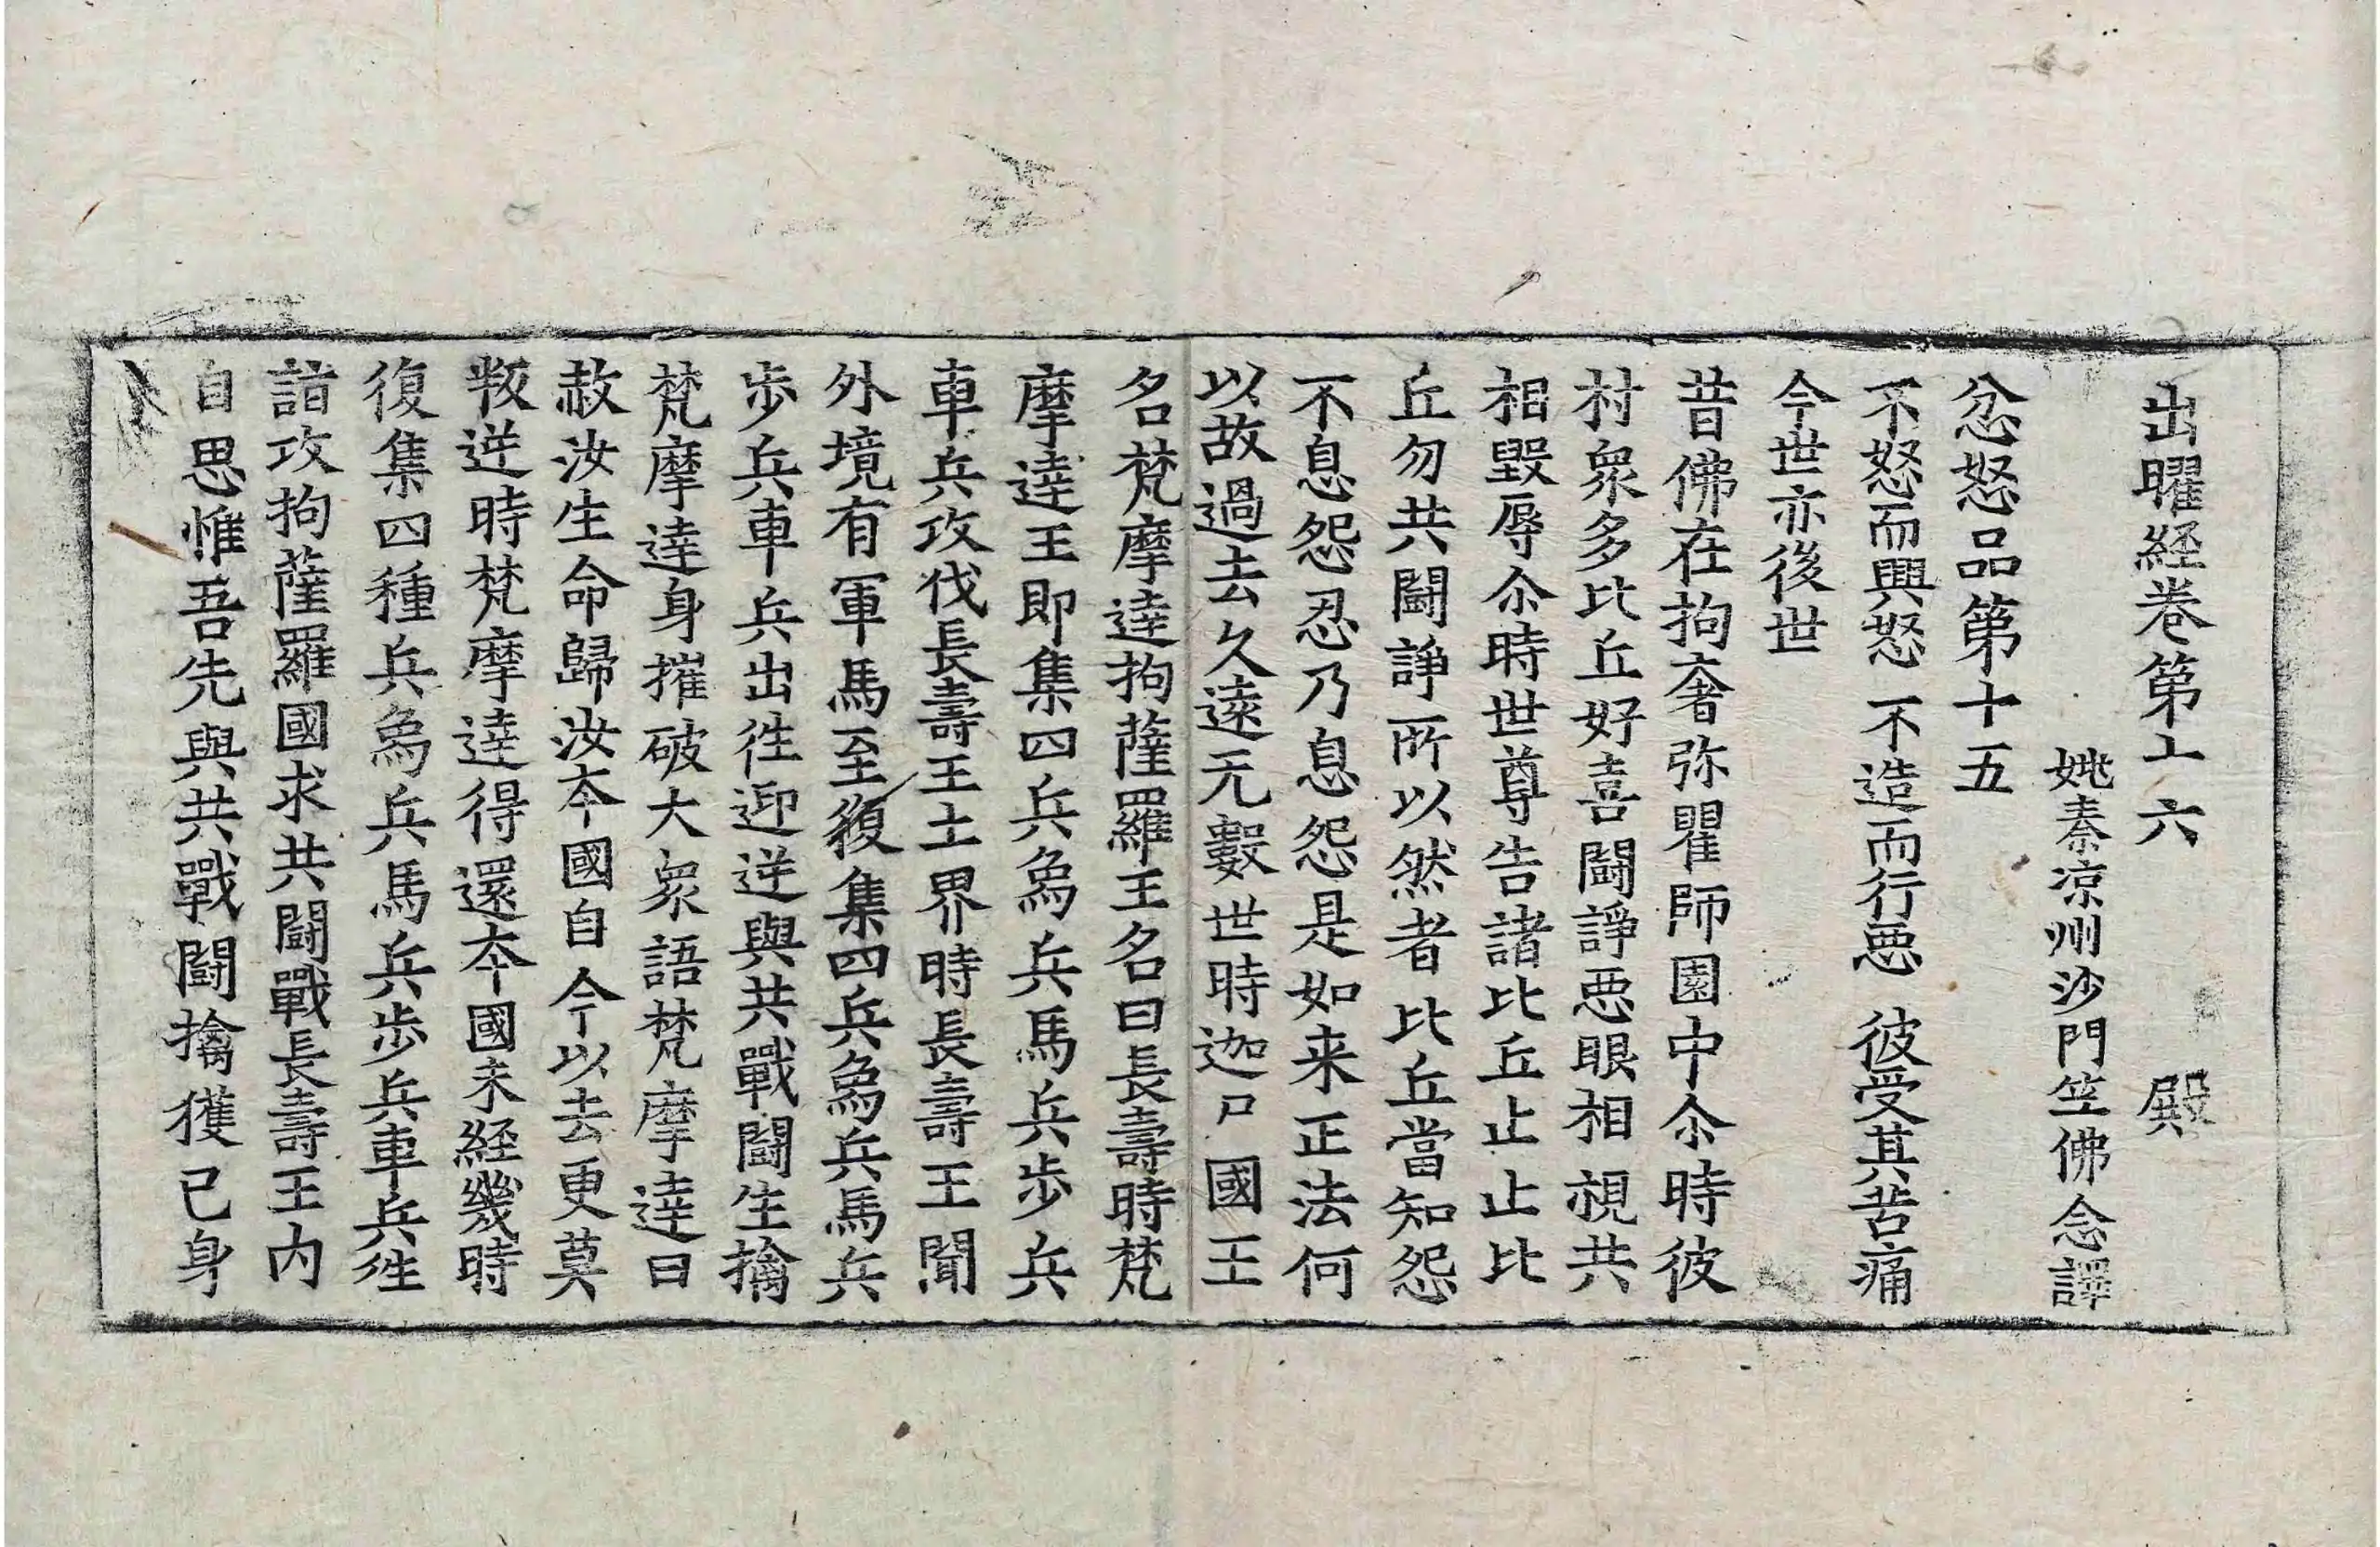 出曜經卷第十六　殿
姚秦涼州沙門竺佛念譯
忿怒品第十五
不怒而興怒　不造而行惡　彼受其苦痛
今世亦後世
昔佛在拘奢弥瞿師園中尒時彼
村衆多比丘好喜鬪諍惡眼相視共
相毀辱尒時世尊告諸比丘止止比
丘勿共鬪諍所以然者比丘當知怨
不息怨忍乃息怨是如来正法何
以故過去久遠无數世時迦尸國王
名梵摩達拘薩羅王名曰長壽時梵
摩達王即集四兵象兵馬兵步兵
車兵攻伐長壽王土界時長壽王聞
外境有軍馬至復集四兵象兵馬兵
步兵車兵出往迎逆與共戰鬪生擒
梵摩達身摧破大衆語梵摩達曰
赦汝生命歸汝夲國自今以去更莫
叛逆時梵摩達得還夲國未經幾時
復集四種兵象兵馬兵步兵車兵往
詣攻拘薩羅國求共鬪戰長壽王内
自思惟吾先與共戰鬪擒獲己身